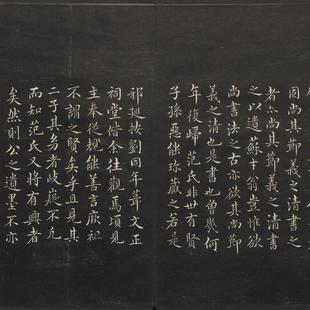 固尚其節義之清書之
者亦尚其節義之清書
之以遺蘇才翁豈惟欲
尚書法之古亦欲其尚節
義之清也是書也曾幾何
年復歸范氏非世有賢
子孫惡能珍藏之若是
邪廵按劉同年葺文正
祠堂偕余往觀焉頃見
主奉從規能善言厥祖
不謂之賢矣乎且見其
二子其幼者岐嶷不凡
而知范氏又將有興者
矣然則公之遺墨不亦